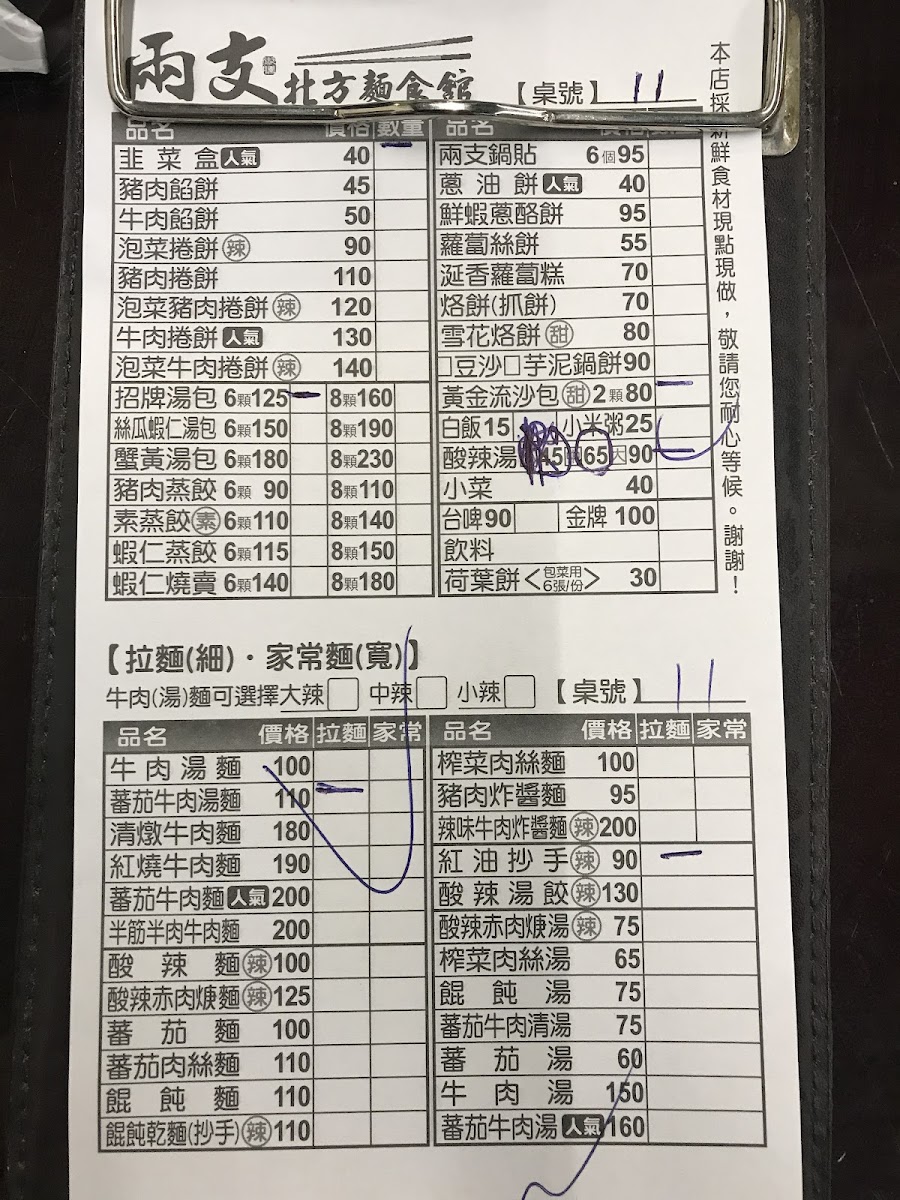 兩支 北方麵食館
【桌號】 11
本店採新鮮食材現點現做，敬請您耐心等候。謝謝！
品名 價格 數量
韭菜盒 人氣 40
豬肉餡餅 45
牛肉餡餅 50
泡菜捲餅 辣 90
豬肉捲餅 110
泡菜豬肉捲餅 辣 120
牛肉捲餅 人氣 130
泡菜牛肉捲餅 辣 140
招牌湯包 6顆125 8顆160
絲瓜蝦仁湯包 6顆150 8顆190
蟹黃湯包 6顆180 8顆230
豬肉蒸餃 6顆 90 8顆110
素蒸餃 素 6顆110 8顆140
蝦仁蒸餃 6顆115 8顆150
蝦仁燒賣 6顆140 8顆180
品名 價格
兩支鍋貼 6個95
蔥油餅 人氣 40
鮮蝦蔥酪餅 95
蘿蔔絲餅 55
涎香蘿蔔糕 70
烙餅(抓餅) 70
雪花烙餅 甜 80
□豆沙□芋泥鍋餅90
黃金流沙包 甜 2顆80
白飯15 小米粥25
酸辣湯 45 65 大90
小菜 40
台啤90 金牌 100
飲料
荷葉餅<包菜用 6張/份> 30
【拉麵(細)·家常麵(寬)】
牛肉(湯)麵可選擇大辣□ 中辣□ 小辣□ 【桌號】 11
品名 價格 拉麵 家常
牛肉湯麵 100
蕃茄牛肉湯麵 110
清燉牛肉麵 180
紅燒牛肉麵 190
蕃茄牛肉麵 人氣 200
半筋半肉牛肉麵 200
酸辣麵 辣 100
酸辣赤肉焿麵 辣 125
蕃茄麵 100
蕃茄肉絲麵 110
餛飩麵 110
餛飩乾麵(抄手) 辣 110
品名 價格 拉麵 家常
榨菜肉絲麵 100
豬肉炸醬麵 95
辣味牛肉炸醬麵 辣 200
紅油抄手 辣 90
酸辣湯餃 辣 130
酸辣赤肉焿湯 辣 75
榨菜肉絲湯 65
餛飩湯 75
蕃茄牛肉清湯 75
蕃茄湯 60
牛肉湯 150
蕃茄牛肉湯 人氣 160